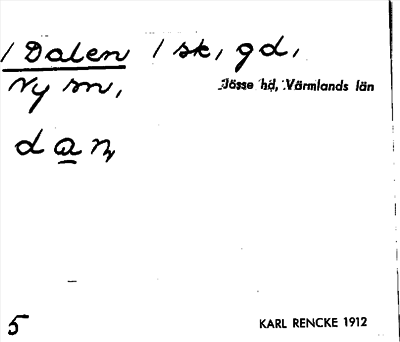 / Dalen / sk, gd,
Ny sn,
Jösse hd, Värmlands län
dan,
5
KARL RENCKE 1912